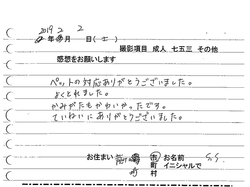 2019 2 2
年 月 日(土)
撮影項目 成人 七五三 その他
感想をお願いします
ペットの対応ありがとうございました。
よくとれました。
かみがたもかわいかったです。
ていねいにありがとうございました。
お住まい 市町村 お名前 イニシャルで S.S